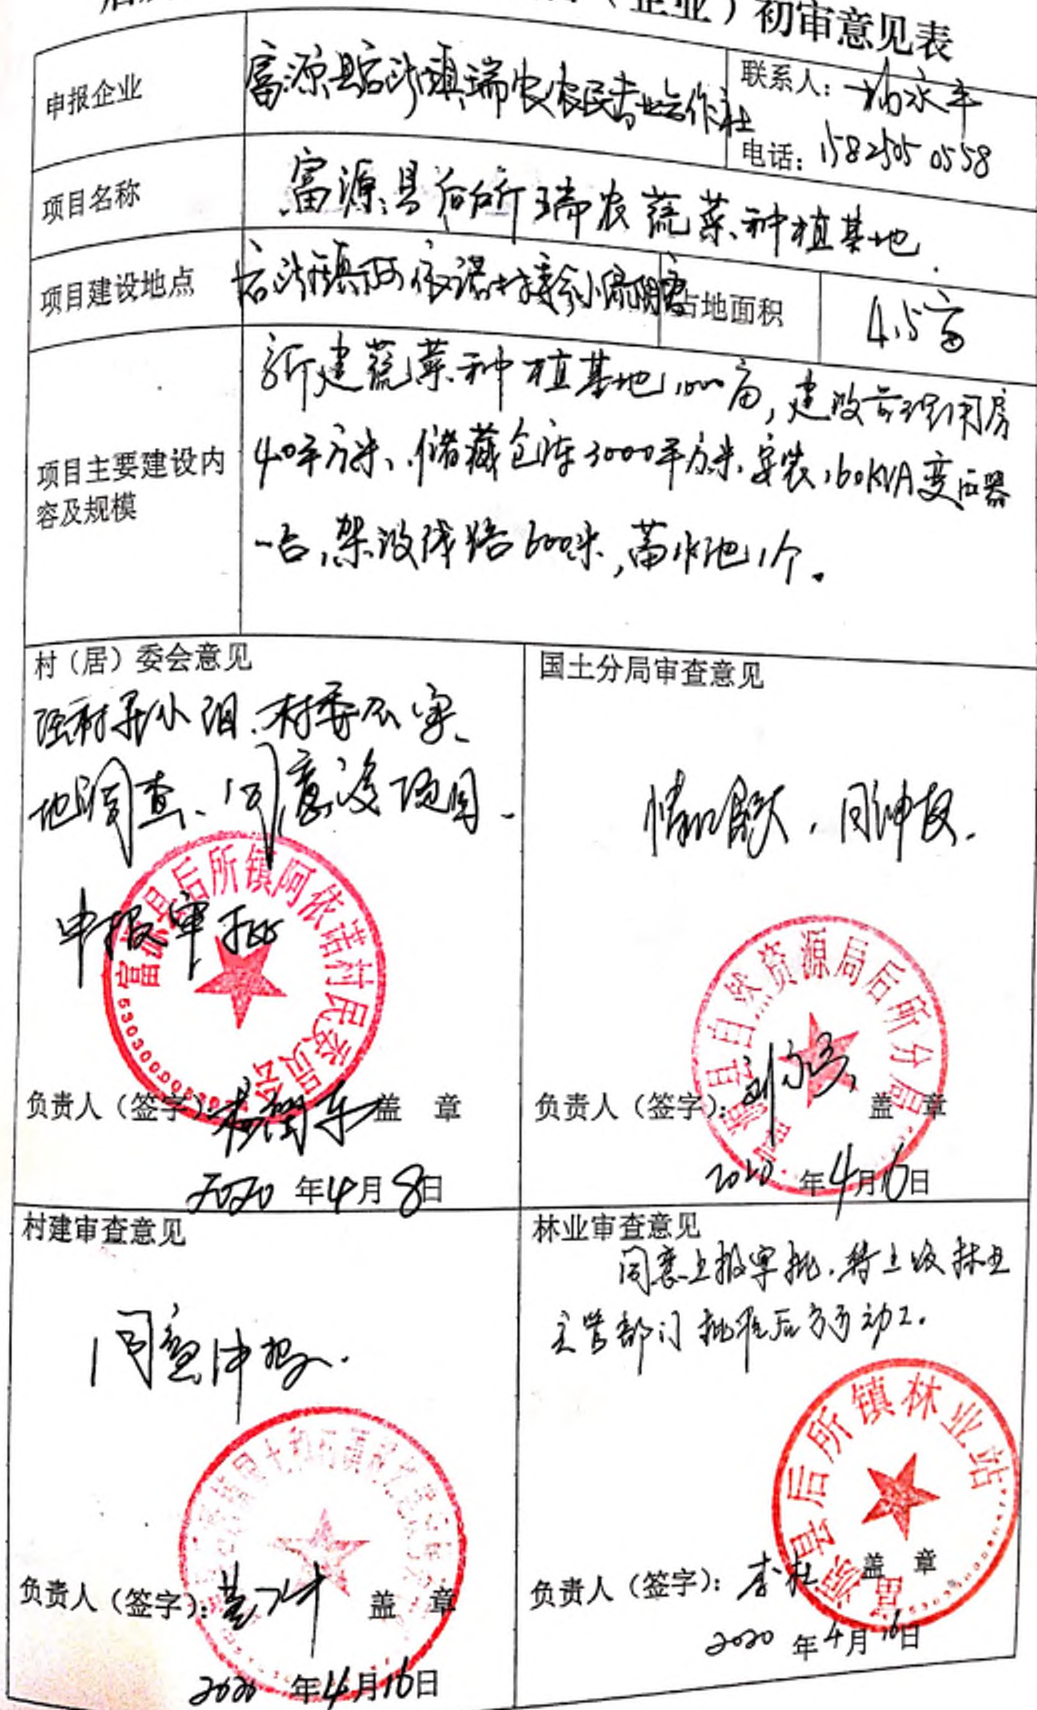 （企业）初审意见表
申报企业
富源县后所镇瑞农农民专业合作社
联系人：
电话：15825050558
项目名称
富源县后所瑞农蔬菜种植基地
项目建设地点
后所镇阿依诺村委会小
占地面积
4.5亩
项目主要建设内
容及规模
新建蔬菜种植基地1000亩，建设管理用房
40平方米、储藏仓库3000平方米、安装160KVA变压器
一台，架设线路600米，蓄水池1个。
村（居）委会意见
村委会实
地调查、同意该项目
申报审批
富源县后所镇阿依诺村民委员会
负责人（签字） 盖 章
2020年4月8日
国土分局审查意见
情况属实，同意申报.
富源县自然资源局后所分局
负责人（签字）： 盖 章
2020年4月16日
村建审查意见
同意申报.
负责人（签字）： 盖 章
2020年4月16日
林业审查意见
同意上报审批，待上级林业
主管部门批准后方可动工.
富源县后所镇林业站
负责人（签字）： 盖 章
2020年4月16日